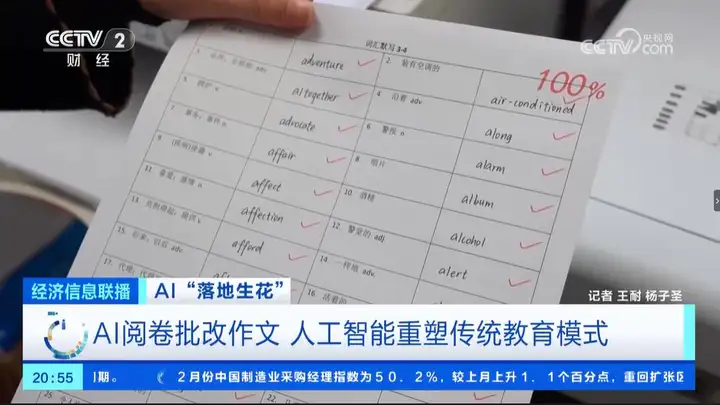 CCTV 2
财经
央视网
CCTV.com
词汇默写 3-4
100%
adventure
2. 装有空调的
air-conditioned
altogether
4. 沿着 adv.
along
advocate
6. 警报 n.
alarm
affair
8. 唱片
album
affect
10. 酒精
alcohol
affection
12. 警觉的 adj.
alert
15. 后来，以后 adv.
afford
14. 一样地 adv.
经济信息联播
AI“落地生花”
记者 王耐 杨子圣
AI阅卷批改作文 人工智能重塑传统教育模式
20:55
期。
2月份中国制造业采购经理指数为50．2%，较上月上升1．1个百分点，重回扩张区